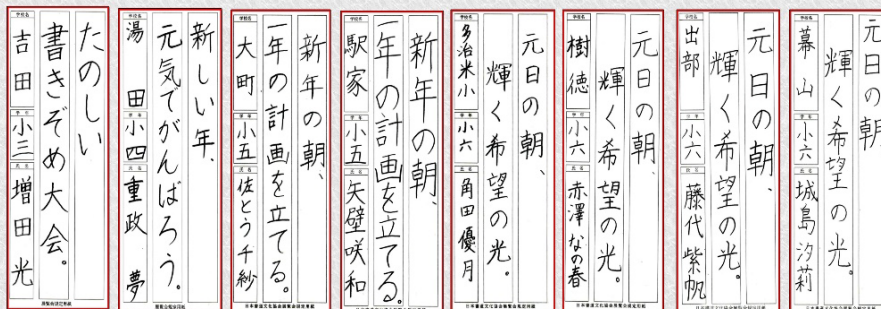 たのしい
書きぞめ大会。
学校名 吉田 学年 小三 氏名 増田光
新しい年、
元気でがんばろう。
学校名 湯田 学年 小四 氏名 重政夢
新年の朝、
一年の計画を立てる。
学校名 大町 学年 小五 氏名 佐とう千紗
新年の朝、
一年の計画を立てる。
学校名 駅家 学年 小五 氏名 矢壁咲和
元日の朝、
輝く希望の光。
学校名 多治米小 学年 小六 氏名 角田優月
元日の朝、
輝く希望の光。
学校名 樹徳 学年 小六 氏名 赤澤なの春
元日の朝、
輝く希望の光。
学校名 出部 学年 小六 氏名 藤代紫帆
元日の朝
輝く希望の光。
学校名 幕山 学年 小六 氏名 城島汐莉